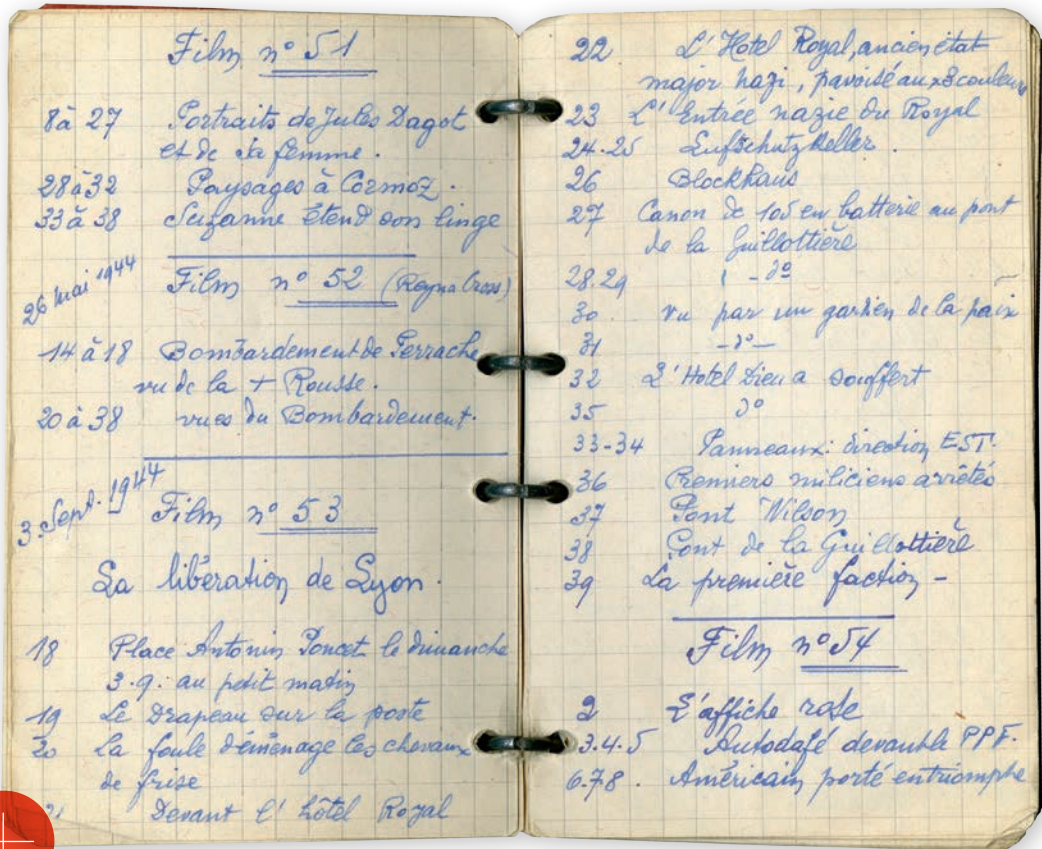 Film n° 51
8 à 27 Portraits de Jules Dagot
et de sa femme.
28 à 32 Paysages à Cormoz.
33 à 38 Suzanne étend son linge
26 mai 1944
Film n° 52
14 à 18 Bombardement de Perrache
vu de la + Rousse.
20 à 38 vues du Bombardement.
3. Sept. 1944
Film n° 53
La libération de Lyon.
18 Place Antonin Poncet le dimanche
3.9. au petit matin
19 Le Drapeau sur la poste
20 La foule déménage les chevaux
de frise
21 Devant l'hôtel Royal
22 L'Hotel Royal, ancien état
major nazi, pavoisé aux 3 couleurs
23 L'Entrée nazie du Royal
24-25 Luftschutzkeller.
26 Blockhaus
27 Canon de 105 en batterie au pont
de la Guillottière
28.29 -d°
30 vu par un gardien de la paix
31 -d°-
32 L'Hotel Dieu a souffert
35 d°
33-34 Panneaux: direction EST.
36 Premiers miliciens arrêtés
37 Pont Wilson
38 Pont de la Guillottière
39 La première faction -
Film n° 54
2 L'affiche rose
3.4.5 Autodafé devant le PPF.
6.7.8. Américain porté en triomphe